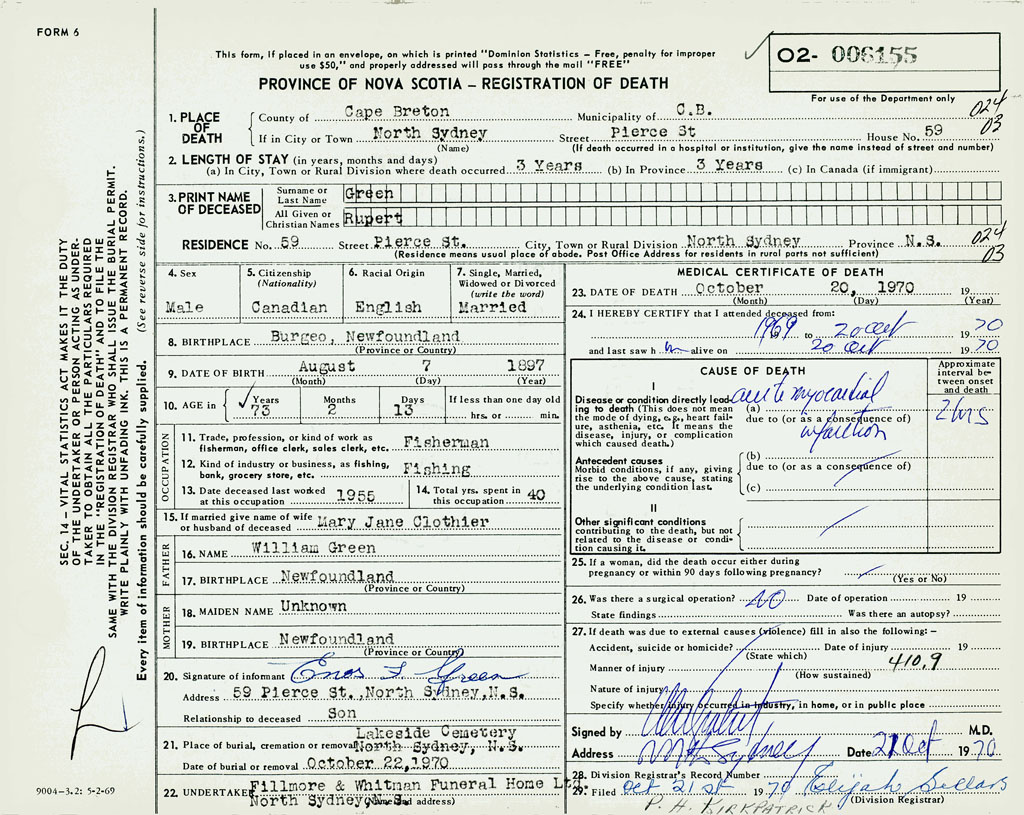 FORM 6
This form, if placed in an envelope, on which is printed "Dominion Statistics – Free, penalty for improper
use $50," and properly addressed will pass through the mail "FREE"
O2- 006155
PROVINCE OF NOVA SCOTIA – REGISTRATION OF DEATH
For use of the Department only
024
03
1. PLACE OF DEATH
County of Cape Breton Municipality of C.B.
If in City or Town North Sydney Street Pierce St House No. 59
(Name) (If death occurred in a hospital or institution, give the name instead of street and number)
2. LENGTH OF STAY (in years, months and days)
(a) In City, Town or Rural Division where death occurred 3 Years (b) In Province 3 Years (c) In Canada (if immigrant)
3. PRINT NAME OF DECEASED
Surname or Last Name Green
All Given or Christian Names Rupert
RESIDENCE No. 59 Street Pierce St. City, Town or Rural Division North Sydney Province N.S. 024
03
(Residence means usual place of abode. Post Office Address for residents in rural parts not sufficient)
4. Sex
Male
5. Citizenship
(Nationality)
Canadian
6. Racial Origin
English
7. Single, Married,
Widowed or Divorced
(write the word)
Married
8. BIRTHPLACE Burgeo, Newfoundland
(Province or Country)
9. DATE OF BIRTH August 7 1897
(Month) (Day) (Year)
10. AGE in Years Months Days If less than one day old
73 2 13 hrs. or min.
OCCUPATION
11. Trade, profession, or kind of work as
fisherman, office clerk, sales clerk, etc. Fisherman
12. Kind of industry or business, as fishing,
bank, grocery store, etc. Fishing
13. Date deceased last worked
at this occupation 1955
14. Total yrs. spent in
this occupation 40
15. If married give name of wife
or husband of deceased Mary Jane Clothier
FATHER
16. NAME William Green
17. BIRTHPLACE Newfoundland
(Province or Country)
MOTHER
18. MAIDEN NAME Unknown
19. BIRTHPLACE Newfoundland
(Province or Country)
20. Signature of informant Enos F Green
Address 59 Pierce St., North Sydney, N.S.
Relationship to deceased Son
21. Place of burial, cremation or removal Lakeside Cemetery
North Sydney, N.S.
Date of burial or removal October 22, 1970
22. UNDERTAKER Fillmore & Whitman Funeral Home Ltd.
North Sydney (Name and address)
MEDICAL CERTIFICATE OF DEATH
23. DATE OF DEATH October 20, 1970 19
(Month) (Day) (Year)
24. I HEREBY CERTIFY that I attended deceased from:
1969 to 20 Oct 19 70
and last saw him alive on 20 Oct 19 70
CAUSE OF DEATH
Approximate
interval be-
tween onset
and death
I
Disease or condition directly lead-
ing to death (This does not mean
the mode of dying, e.g., heart fail-
ure, asthenia, etc. It means the
disease, injury, or complication
which caused death.)
(a) acute myocardial
due to (or as a consequence of)
infarction
2 hrs
Antecedent causes
Morbid conditions, if any, giving
rise to the above cause, stating
the underlying condition last.
(b)
due to (or as a consequence of)
(c)
II
Other significant conditions
contributing to the death, but not
related to the disease or condi-
tion causing it.
25. If a woman, did the death occur either during
pregnancy or within 90 days following pregnancy?
(Yes or No)
26. Was there a surgical operation? NO Date of operation 19
State findings Was there an autopsy?
27. If death was due to external causes (violence) fill in also the following: –
Accident, suicide or homicide? Date of injury 19
(State which)
410.9
Manner of injury
(How sustained)
Nature of injury
Specify whether injury occurred in industry, in home, or in public place
Signed by M.D.
Address Nth Sydney Date 21 Oct 19 70
28. Division Registrar's Record Number
29. Filed Oct 21st 19 70 Elijah Sellars
(Division Registrar)
P. H. KIRKPATRICK
SEC. 14 – VITAL STATISTICS ACT MAKES IT THE DUTY
OF THE UNDERTAKER OR PERSON ACTING AS UNDER-
TAKER TO OBTAIN ALL THE PARTICULARS REQUIRED
IN THE "REGISTRATION OF DEATH" AND TO FILE THE
SAME WITH THE DIVISION REGISTRAR WHO SHALL ISSUE THE BURIAL PERMIT.
WRITE PLAINLY WITH UNFADING INK. THIS IS A PERMANENT RECORD.
Every item of information should be carefully supplied. (See reverse side for instructions.)
9004-3.2: 5-2-69